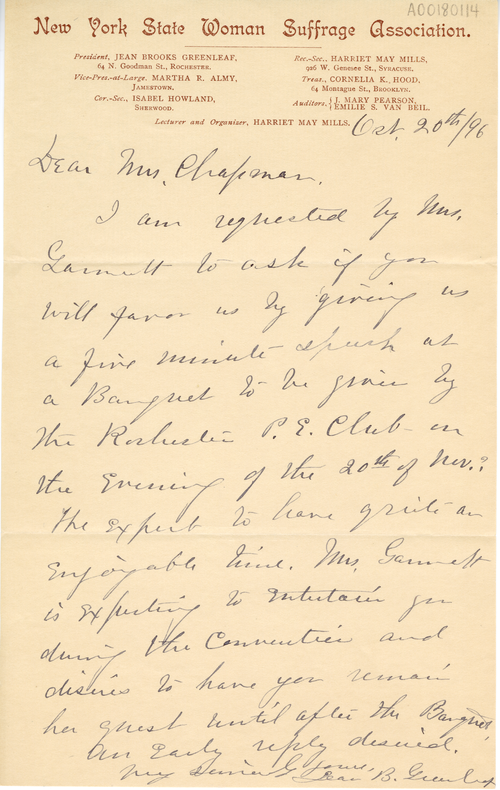 A00180114
New York State Woman Suffrage Association.
President, JEAN BROOKS GREENLEAF,
64 N. Goodman St., ROCHESTER.
Vice-Pres.-at-Large. MARTHA R. ALMY,
JAMESTOWN.
Cor.-Sec., ISABEL HOWLAND,
SHERWOOD.
Rec.-Sec., HARRIET MAY MILLS,
926 W. Genesee St., SYRACUSE.
Treas., CORNELIA K. HOOD,
64 Montague St., BROOKLYN.
Auditors, { J. MARY PEARSON,
EMILIE S. VAN BEIL.
Lecturer and Organizer, HARRIET MAY MILLS.
Oct. 20th/96
Dear Mrs. Chapman.
I am requested by Mrs.
Gannett to ask if you
will favor us by giving us
a five minute speech at
a Banquet to be given by
the Rochester P. E. Club on
the Evening of the 20th of Nov.?
The expect to have quite an
enjoyable time. Mrs. Gannett
is expecting to entertain you
during the Convention and
desires to have you remain
her guest until after the Banquet.
An Early reply desired.
Very Sincerely yours,
Jean B. Greenleaf